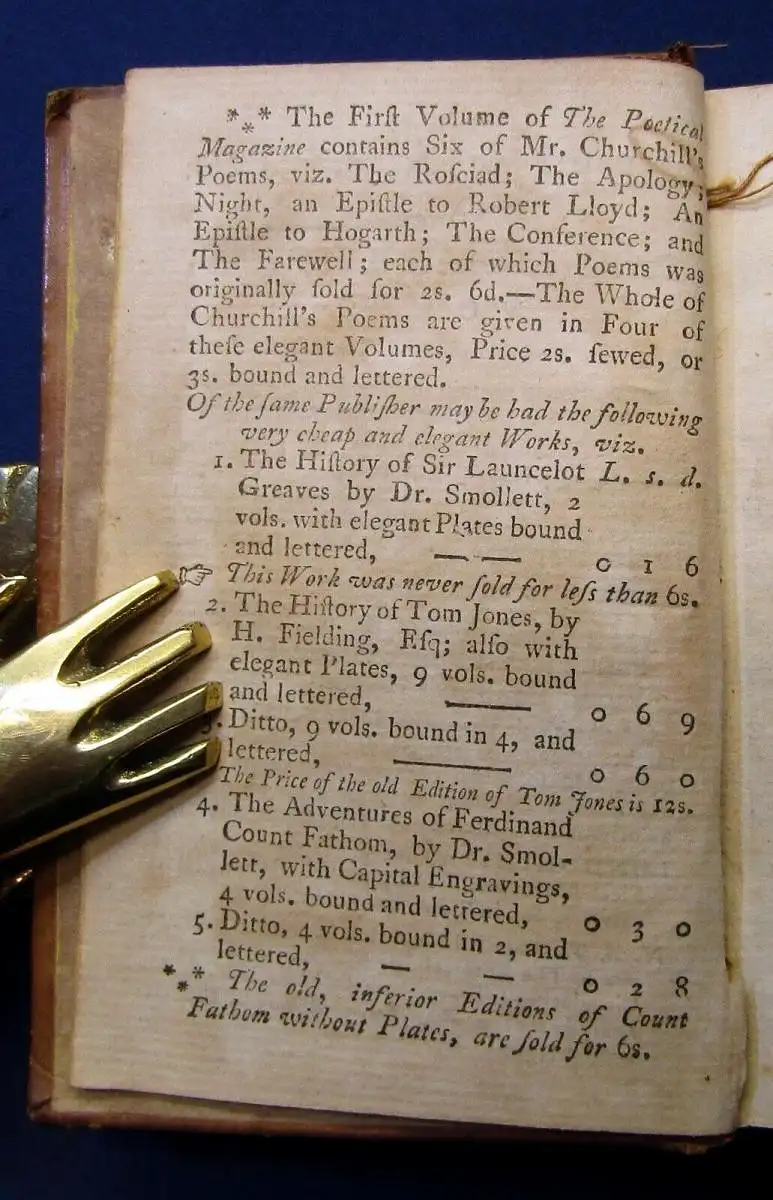 *⁎* The Firſt Volume of The Poetical
Magazine contains Six of Mr. Churchill's
Poems, viz. The Roſciad; The Apology;
Night, an Epiſtle to Robert Lloyd; An
Epiſtle to Hogarth; The Conference; and
The Farewell; each of which Poems was
originally ſold for 2s. 6d.—The Whole of
Churchill's Poems are given in Four of
theſe elegant Volumes, Price 2s. ſewed, or
3s. bound and lettered.
Of the ſame Publiſher may be had the following
very cheap and elegant Works, viz.
1. The Hiſtory of Sir Launcelot L. s. d.
Greaves by Dr. Smollett, 2
vols. with elegant Plates bound
and lettered, — — 0 1 6
☞ This Work was never ſold for leſs than 6s.
2. The Hiſtory of Tom Jones, by
H. Fielding, Eſq; alſo with
elegant Plates, 9 vols. bound
and lettered, — 0 6 9
3. Ditto, 9 vols. bound in 4, and
lettered, — 0 6 0
The Price of the old Edition of Tom Jones is 12s.
4. The Adventures of Ferdinand
Count Fathom, by Dr. Smol-
lett, with Capital Engravings,
4 vols. bound and lettered, 0 3 0
5. Ditto, 4 vols. bound in 2, and
lettered, — — 0 2 8
*⁎* The old, inferior Editions of Count
Fathom without Plates, are ſold for 6s.